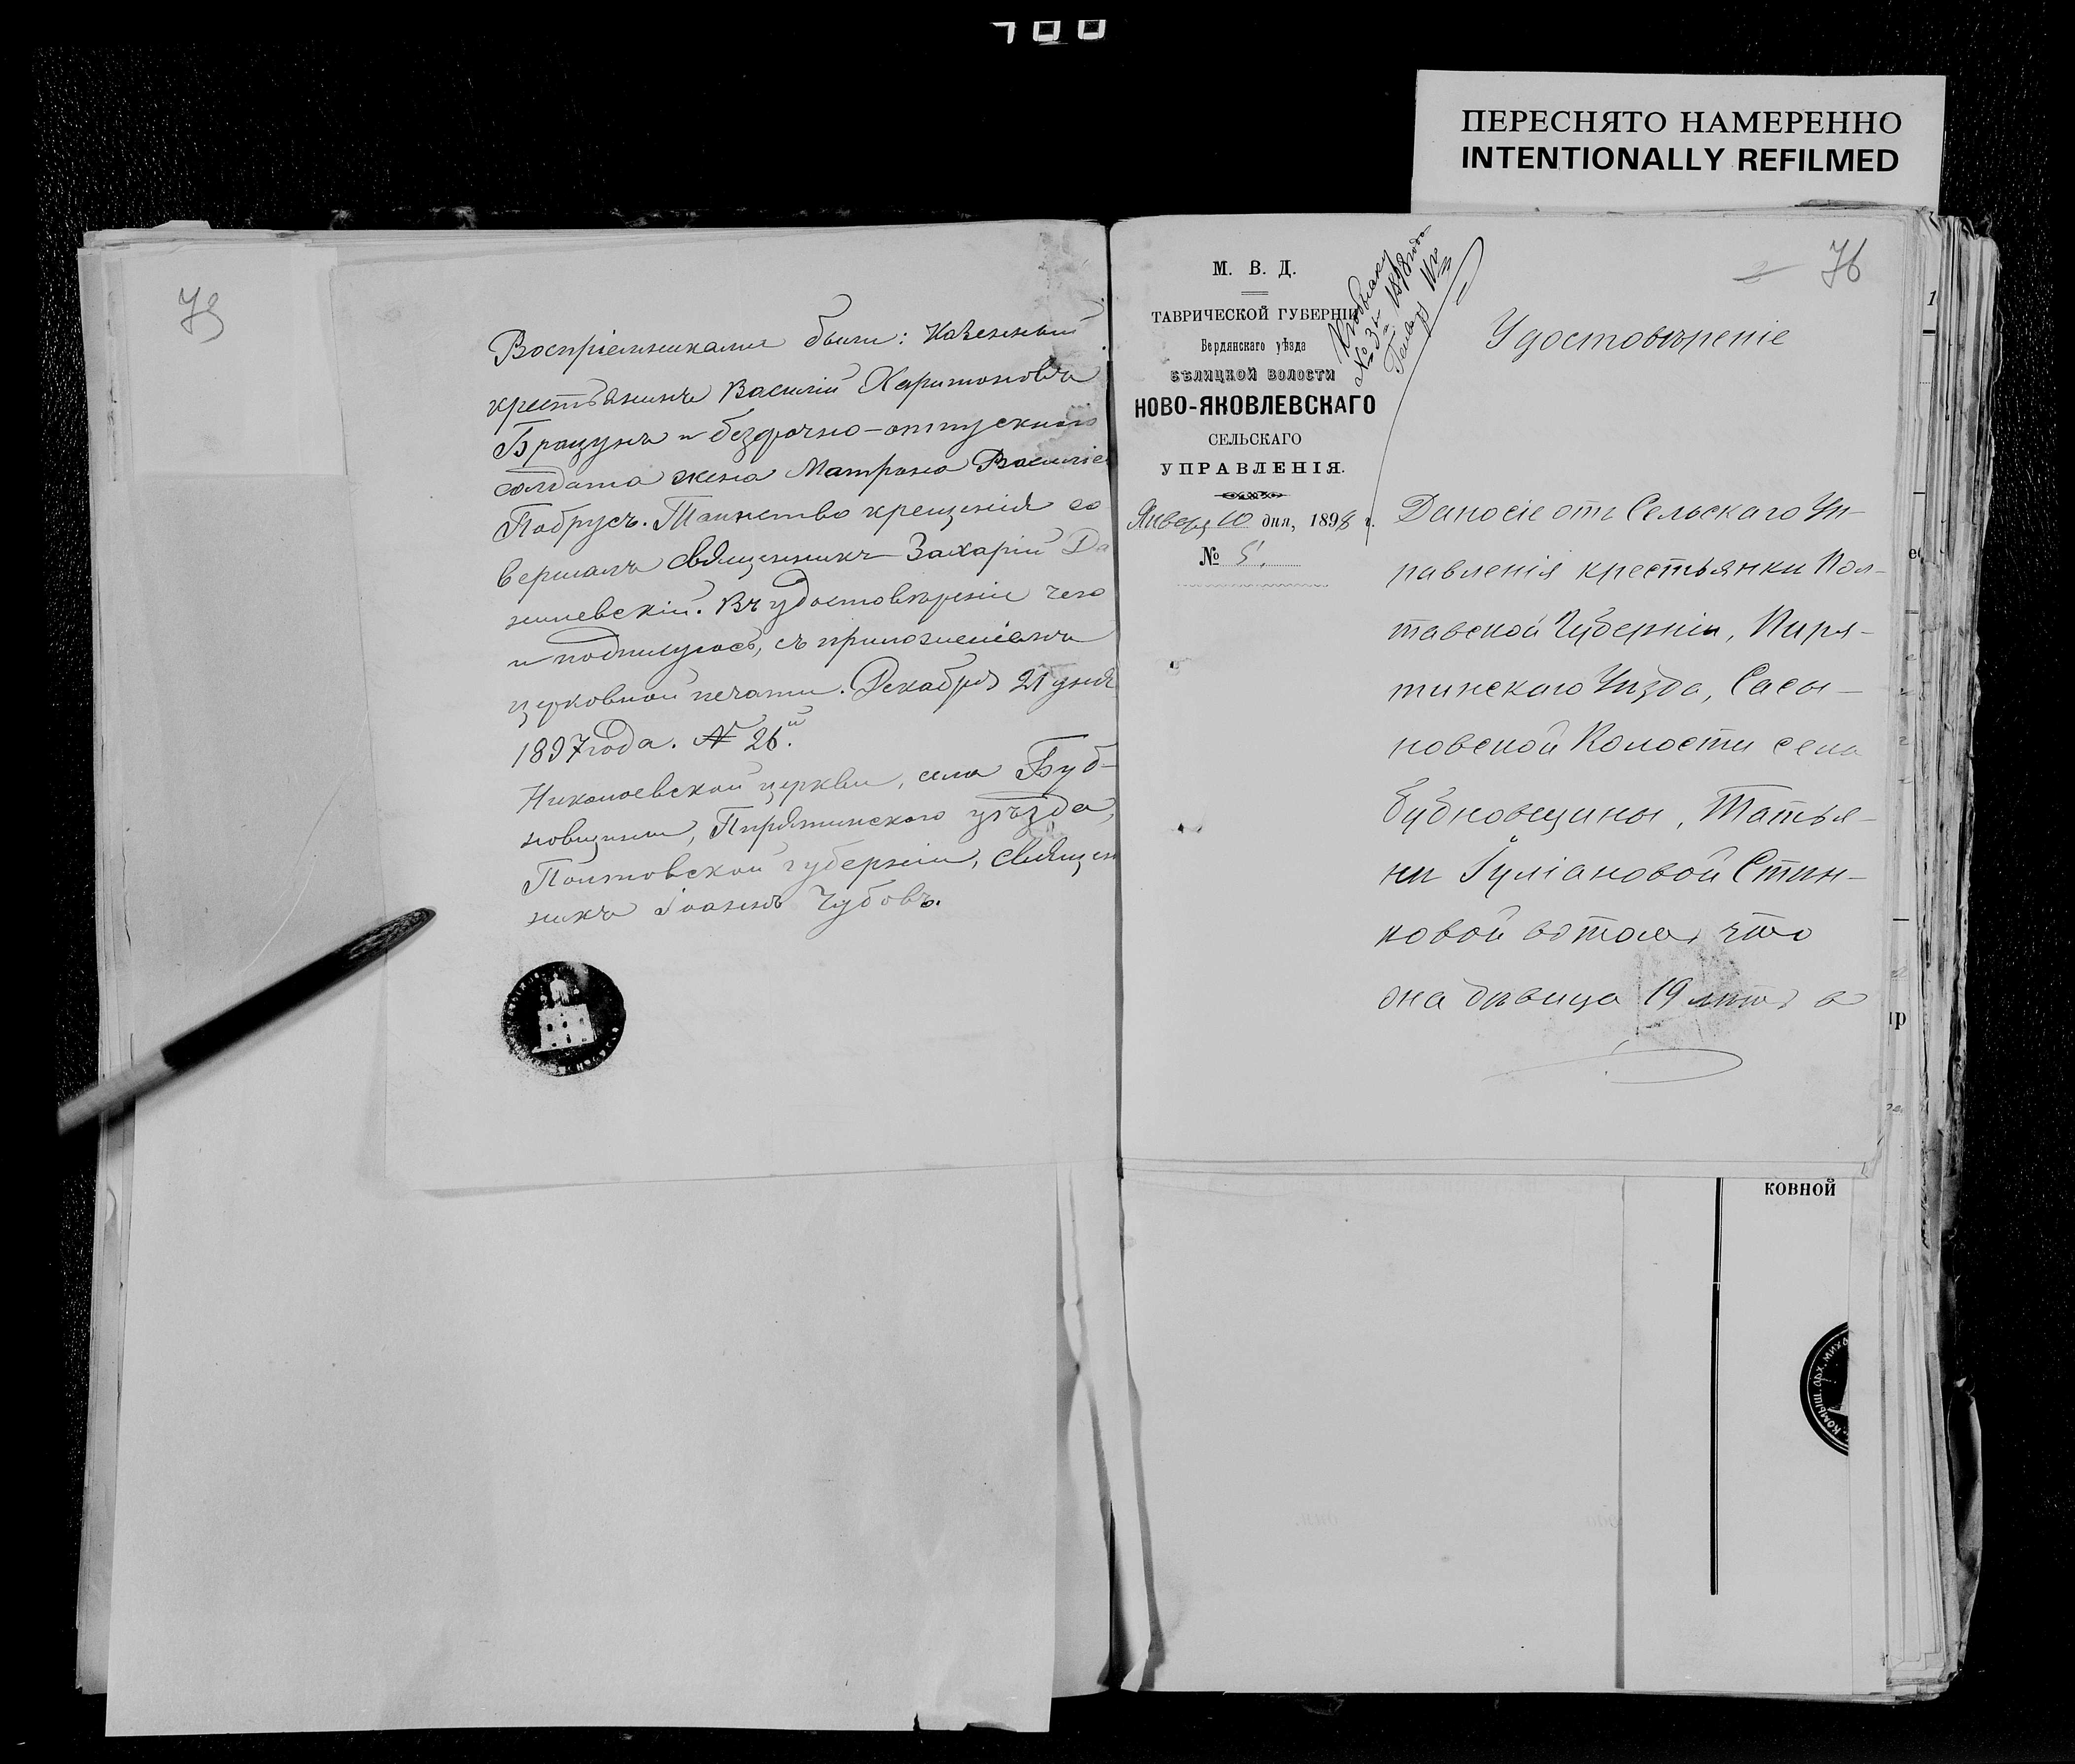 700
ПЕРЕСНЯТО НАМЕРЕННО
INTENTIONALLY REFILMED
75
Воспріемниками были: Казенный
крестьянинъ Василій Харитоновъ
Брацунъ и безсрочно-отпускнаго
солдата жена Матрона Василіе
Побрусъ. Таинство крещенія со
вершалъ священникъ Захарій Да
нилевскій. Въ удостовѣреніе чего
и подпишуюсь, съ приложеніемъ
церковной печати. Декабря 21 дня
1897 года. № 26.й
Николаевской церкви, села Буб-
новщины, Пирятинскаго уѣзда,
Полтавской губерніи, священ
никъ Іоаннъ Чубовъ.
М. В. Д.
ТАВРИЧЕСКОЙ ГУБЕРНІИ
Бердянскаго уѣзда
БѢЛИЦКОЙ ВОЛОСТИ
НОВО-ЯКОВЛЕВСКАГО
СЕЛЬСКАГО
УПРАВЛЕНІЯ.
Январ 10 дня, 1898 г.
№ 5.
Къ обыску
№ 3й 1898 года
Генвар
76
Удостовѣреніе
Дано сіе отъ Сельскаго Уп-
равленія крестьянки Пол-
тавской Губерніи, Пиря-
тинскаго Уѣзда, Сасы-
новской Волости села
Бубновщины, Татья-
ни Іуліановой
новой въ томъ, что
она дѣвица 19 лѣтъ в
КОВНОЙ
КОМЫШ. АРХ. МИХА